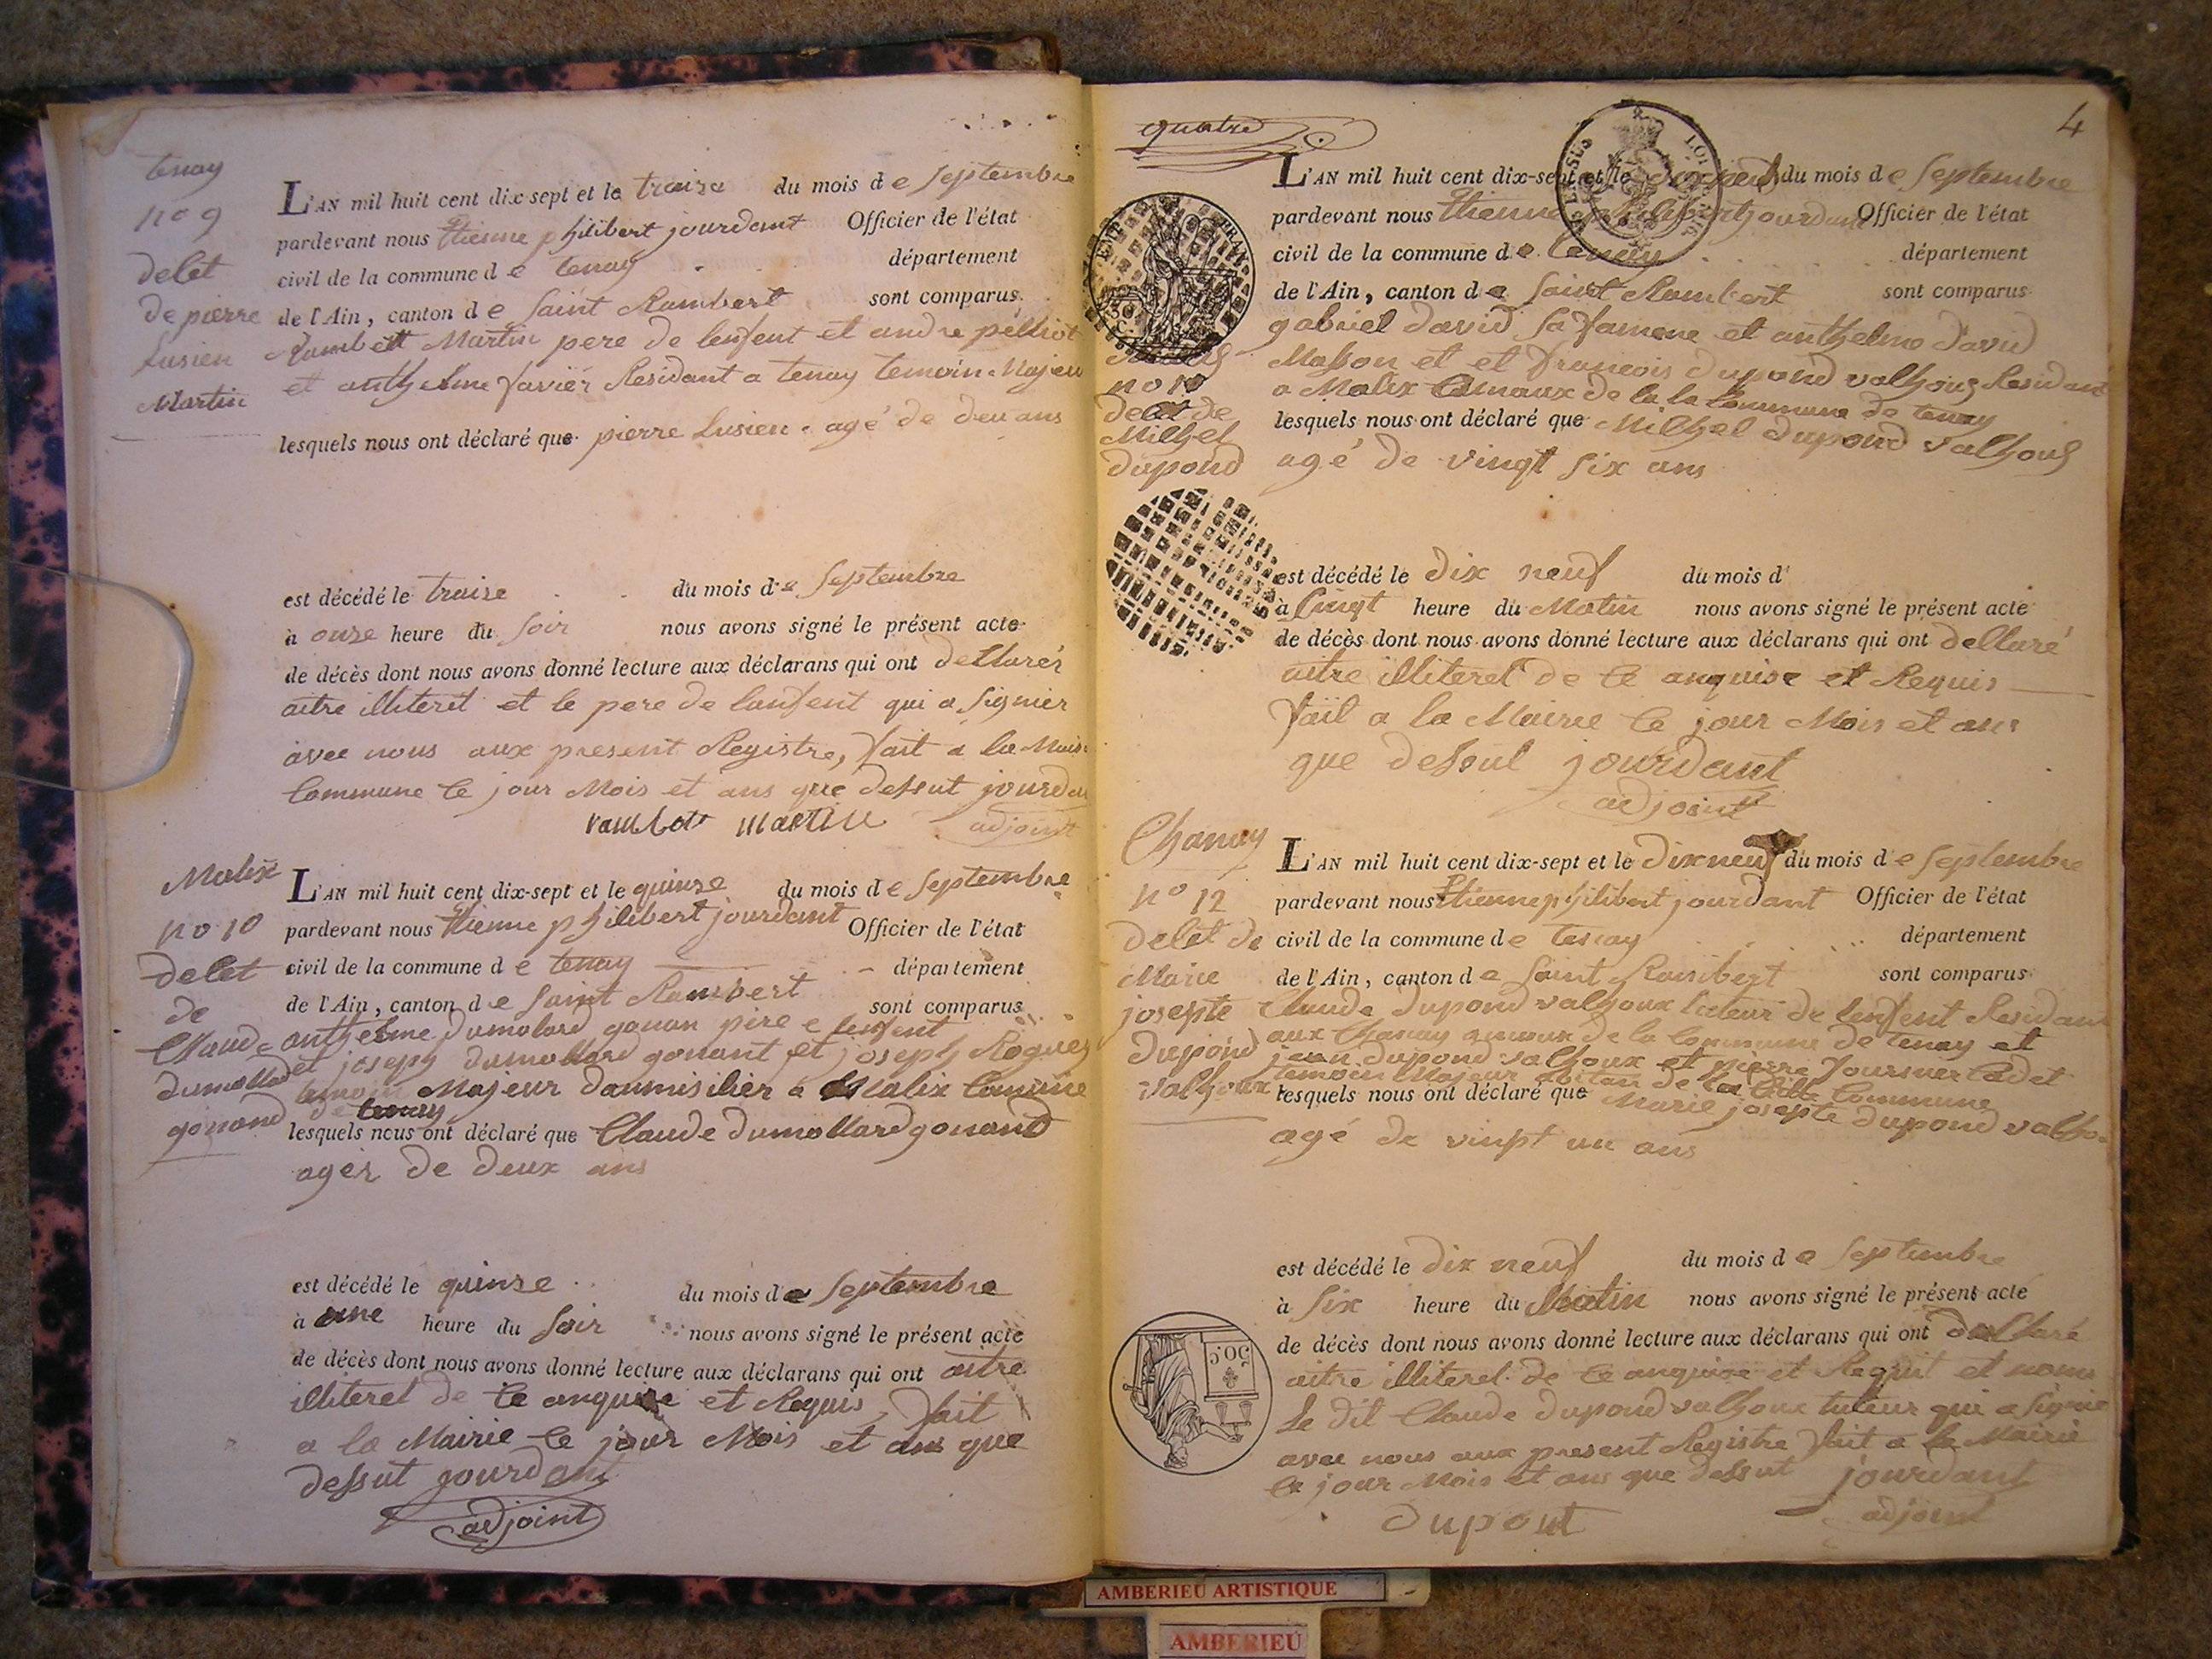 tenay
no 9
delet
de pierre
Lusien
Martin
L'AN mil huit cent dix-sept et le traize du mois de Septembre
pardevant nous Etienne philibert jourdant Officier de l'état
civil de la commune de tenay département
de l'Ain, canton de Saint Rambert sont comparus
Rambert Martin pere de lenfent et andre pelliot
et anthelme favier Residant a tenay temoin Majeu
lesquels nous ont déclaré que pierre Lusien agé de deu ans
est décédé le traize du mois de Septembre
à onze heure du Soir nous avons signé le présent acte
de décès dont nous avons donné lecture aux déclarans qui ont dellarér
aitre illiteret et le pere de lanfent qui a signier
avec nous aux present Registre, fait a la Mais
Commune le jour Mois et ans que dessut jourdan
rambert martin adjoint
Malix
no 10
delet
de
Claude
dumollard
gonand
L'AN mil huit cent dix-sept et le quinze du mois de Septembre
pardevant nous Etienne philibert jourdant Officier de l'état
civil de la commune de tenay département
de l'Ain, canton de Saint Rambert sont comparus
anthelme dumolard gonan pere e lenfent
et joseph dumollard gonant et joseph Roguez
temoin Majeur daumisilier a Malix Commune
de tenay
lesquels nous ont déclaré que Claude dumollard gonand
agér de deux ans
est décédé le quinze du mois de Septembre
à une heure du Soir nous avons signé le présent acte
de décès dont nous avons donné lecture aux déclarans qui ont aitre
illiteret de ce anquise et Requis, fait
a la Mairie le jour Mois et ans que
dessut jourdant
adjoint
quatre
4
no 11
delet de
Milhel
dupond
L'AN mil huit cent dix-sept et le dix neuf du mois de Septembre
pardevant nous Etienne philibert jourdant Officier de l'état
civil de la commune de tenay département
de l'Ain, canton de Saint Rambert sont comparus
gabriel david sa famene et anthelme david
Masson et et francois dupond valhous Residant
a Malix amaux de la la Commune de tenay
lesquels nous ont déclaré que Milhel dupond valhous
agé de vingt six ans
est décédé le dix neuf du mois d'
à Cinqt heure du Matin nous avons signé le présent acte
de décès dont nous avons donné lecture aux déclarans qui ont dellaré
aitre illiteret de ce anquise et Requis
fait a la Mairie le jour Mois et ans
que dessut jourdant
adjoint
Chanay
no 12
delet de
Marie
josepte
dupond
valhoux
L'AN mil huit cent dix-sept et le dix neuf du mois de Septembre
pardevant nous Etienne philibert jourdant Officier de l'état
civil de la commune de tenay département
de l'Ain, canton de Saint Rambert sont comparus
Claude dupond valhoux tuteur de lenfent Residan
aux Chanay amoux de la Commune de tenay et
jean dupond valhoux et pierre fournier Cadet
temoin Majeur abitan de la dite Commune
lesquels nous ont déclaré que Marie josepte dupond valho
agé de vinpt un ans
est décédé le dix neuf du mois de Septembre
à Six heure du Matin nous avons signé le présent acte
de décès dont nous avons donné lecture aux déclarans qui ont dellaré
aitre illiteret de ce anquise et Requit et nomé
Le dit Claude dupond valhoux tuteur qui a signié
avec nous aux present Registre fait a la Mairie
le jour Mois et ans que dessut jourdant
dupont adjoint
AMBERIEU ARTISTIQUE
AMBERIEU